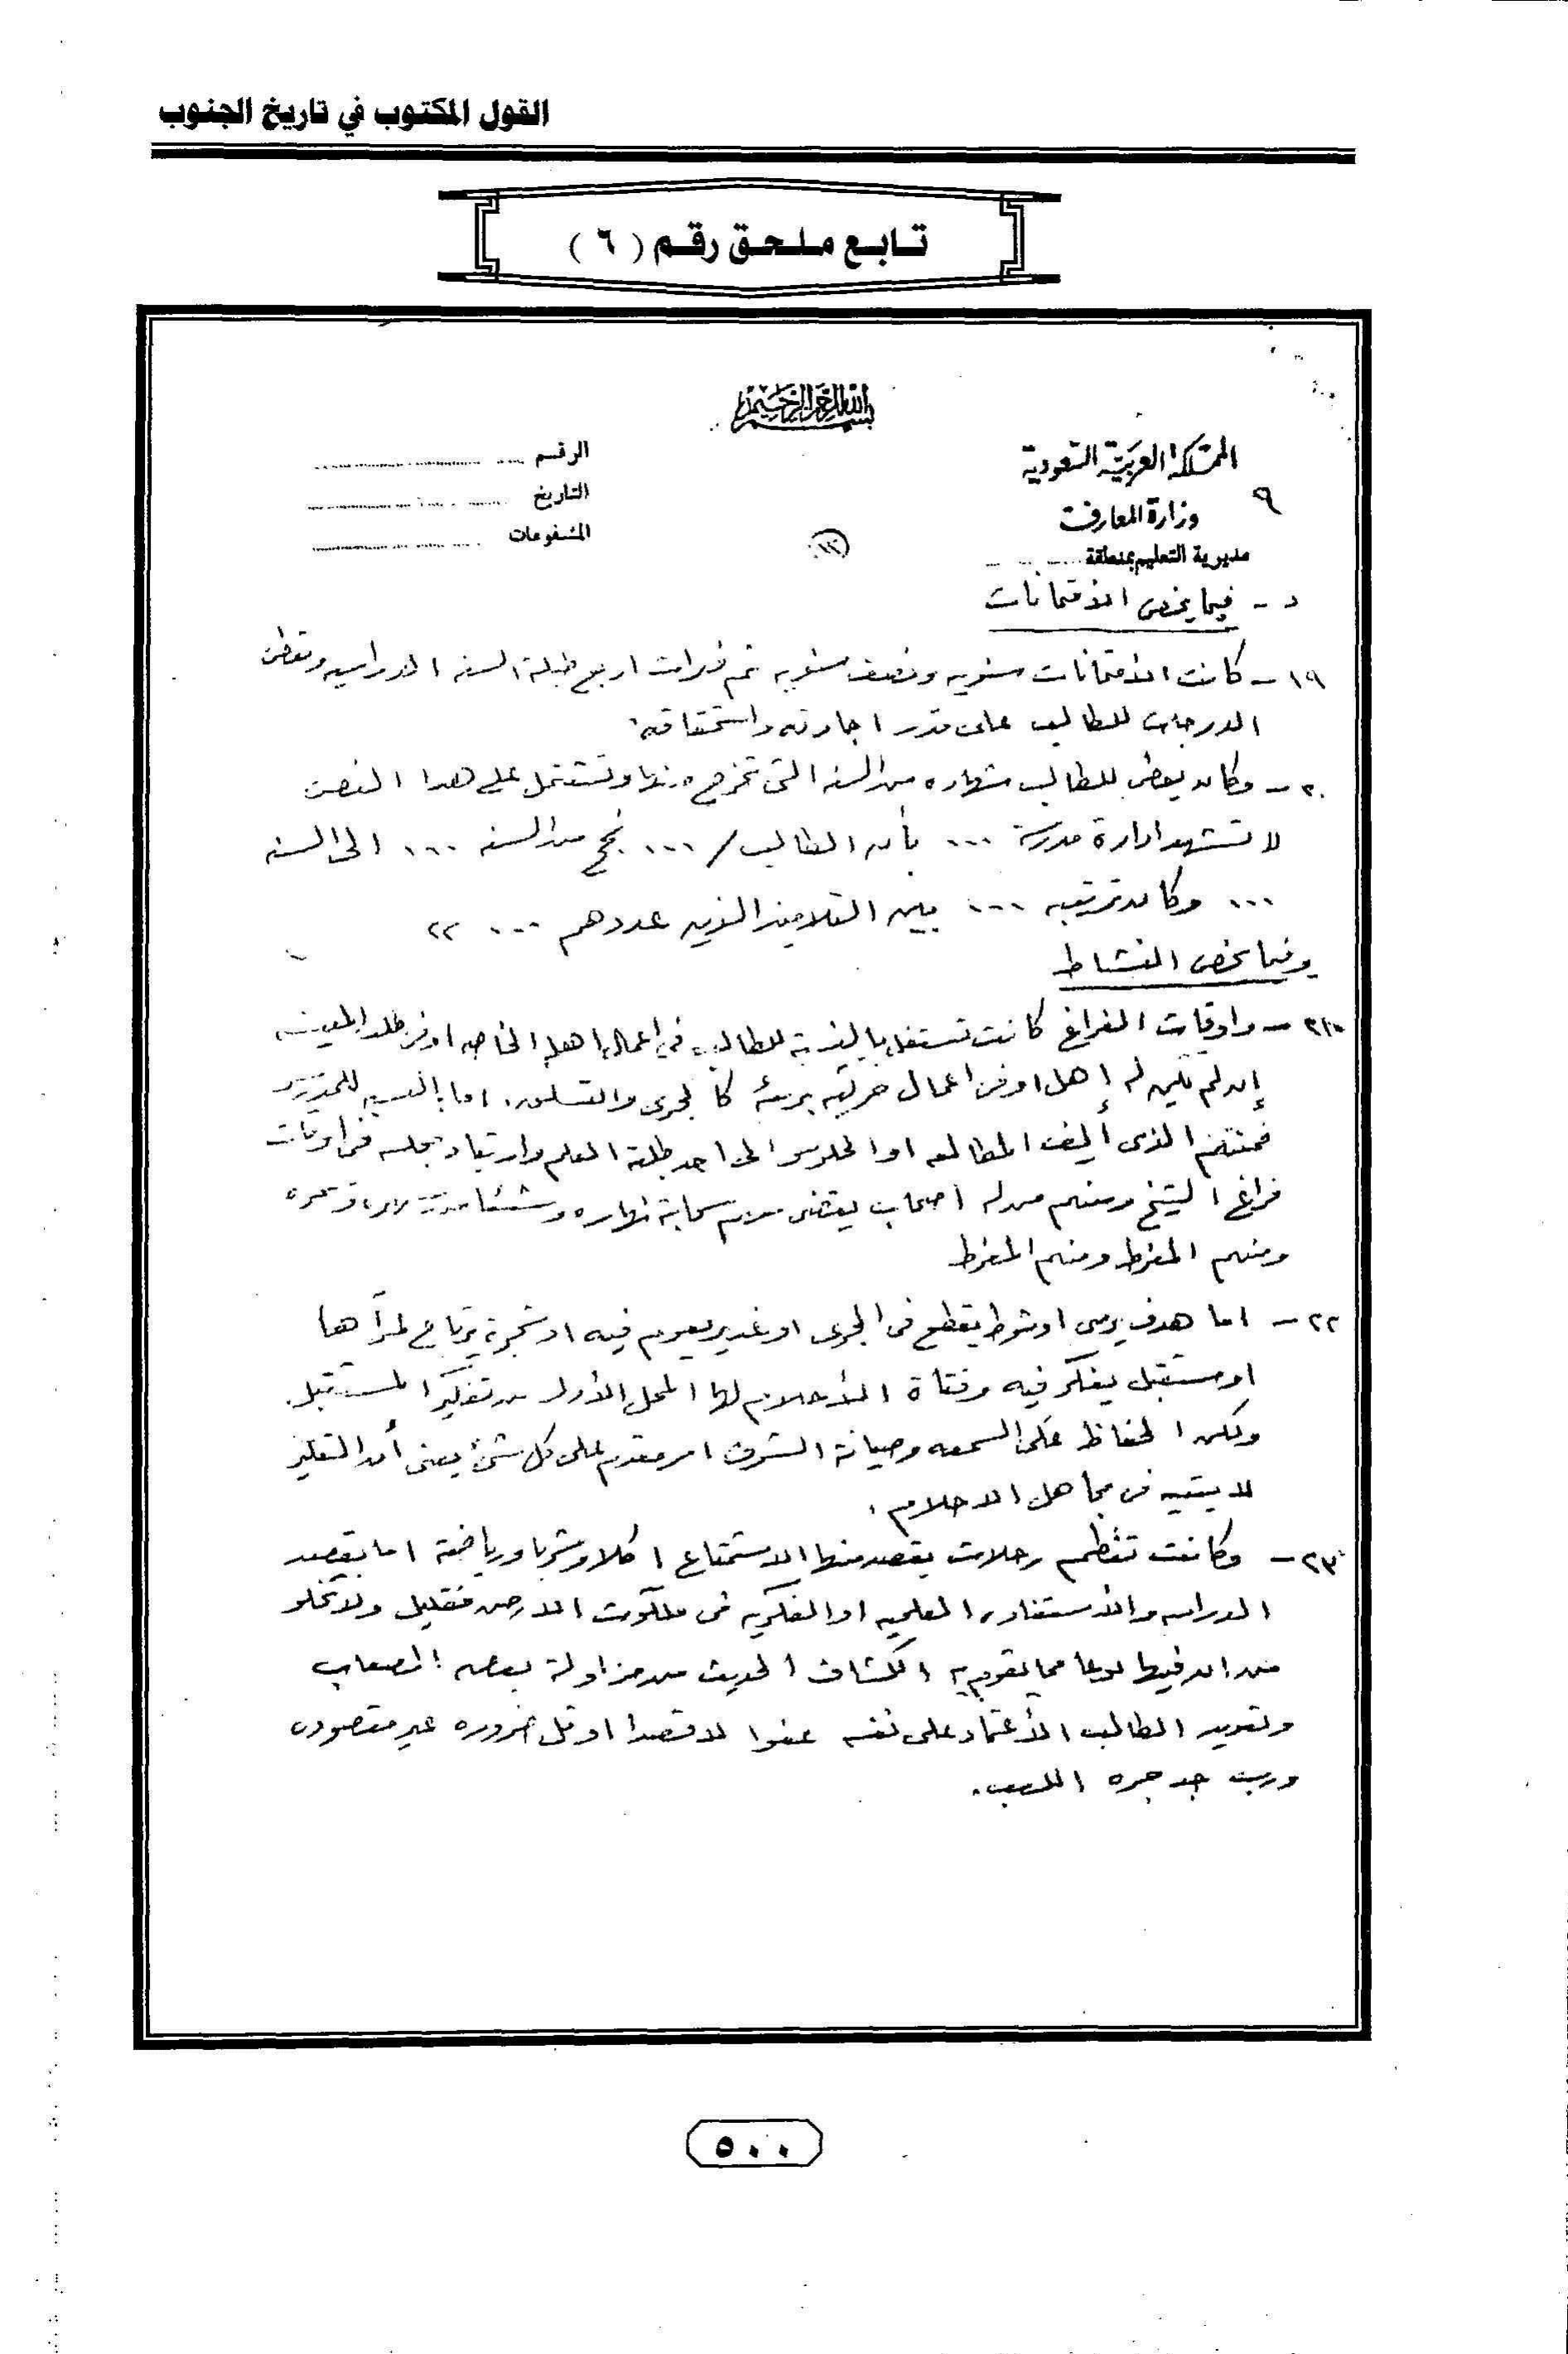 القول المكتوب في تاريخ الجنوب
تابع ملحق رقم (٦)
بسم الله الرحمن الرحيم
المملكة العربية السعودية
وزارة المعارف
مديرية التعليم بمنطقة
الرقم
التاريخ
المشفوعات
٩
د - فيما يخص الامتحانات
١٩ - كانت الامتحانات سنويه ونصف سنويه ثم فترات اربع طيلة السنه الدراسيه وتعطى
الدرجات للطالب على قدر اجادته واستحقاقه.
٢٠ - وكان يعطى للطالب شهاده من السنه التى تخرج منها وتشتمل على هذا النص
لا تشهد ادارة مدرسة ... بأن الطالب / ... نجح من السنه ... الى السنه
... وكان ترتيبه ... بين التلاميذ الذين عددهم ... ٢٢
وفيما يخص النشاط
٢١ - واوقات الفراغ كانت تستغل بالنسبة للطالب فى اعمال اهله الخاصه او فى طلب المعيشه
إن لم تكن له إهل او فى اعمال حركيه بريئة كالجرى والتسلق. اما بالنسبه للمدرس
فمنهم الذى أليف المطالعه او الجلوس الى احد طلبة العلم وارتياد مجلسه فى اوقات
فراغ الشيخ ومنهم من له اصحاب يقضى معهم سحابة نهاره وشيئا من
ومنهم المفرط ومنهم المفرط
٢٢ - اما هدف يرمى او شوط يقطع فى الجرى او غدير يعوم فيه او شجرة يرتاح لمرآها
او مستقبل يفكر فيه وفتاة الأحلام لها المحل الأول من تفكير المستقبل.
ولكن الحفاظ على السمعه وصيانة الشرف امر مقدم على كل شئ يعنى أن التفكير
لا يتيه فى مجاهل الاحلام.
٢٣ - وكانت تنظم رحلات يقصد منها الاستمتاع اكلا وشربا ورياضة اما بقصد
الدراسه والاستفاده العلميه او الفكريه فى ملكوت الارض فقليل ولا تخلو
من ان فيها نوعا مما يقوم به الكشاف الحديث من مزاولة بعض الصعاب
وتعويد الطالب الأعتماد على نفسه عفوا لا قصدا او قل ضروره غير مقصوده
ورب جد جره اللعب.
٥٠٠